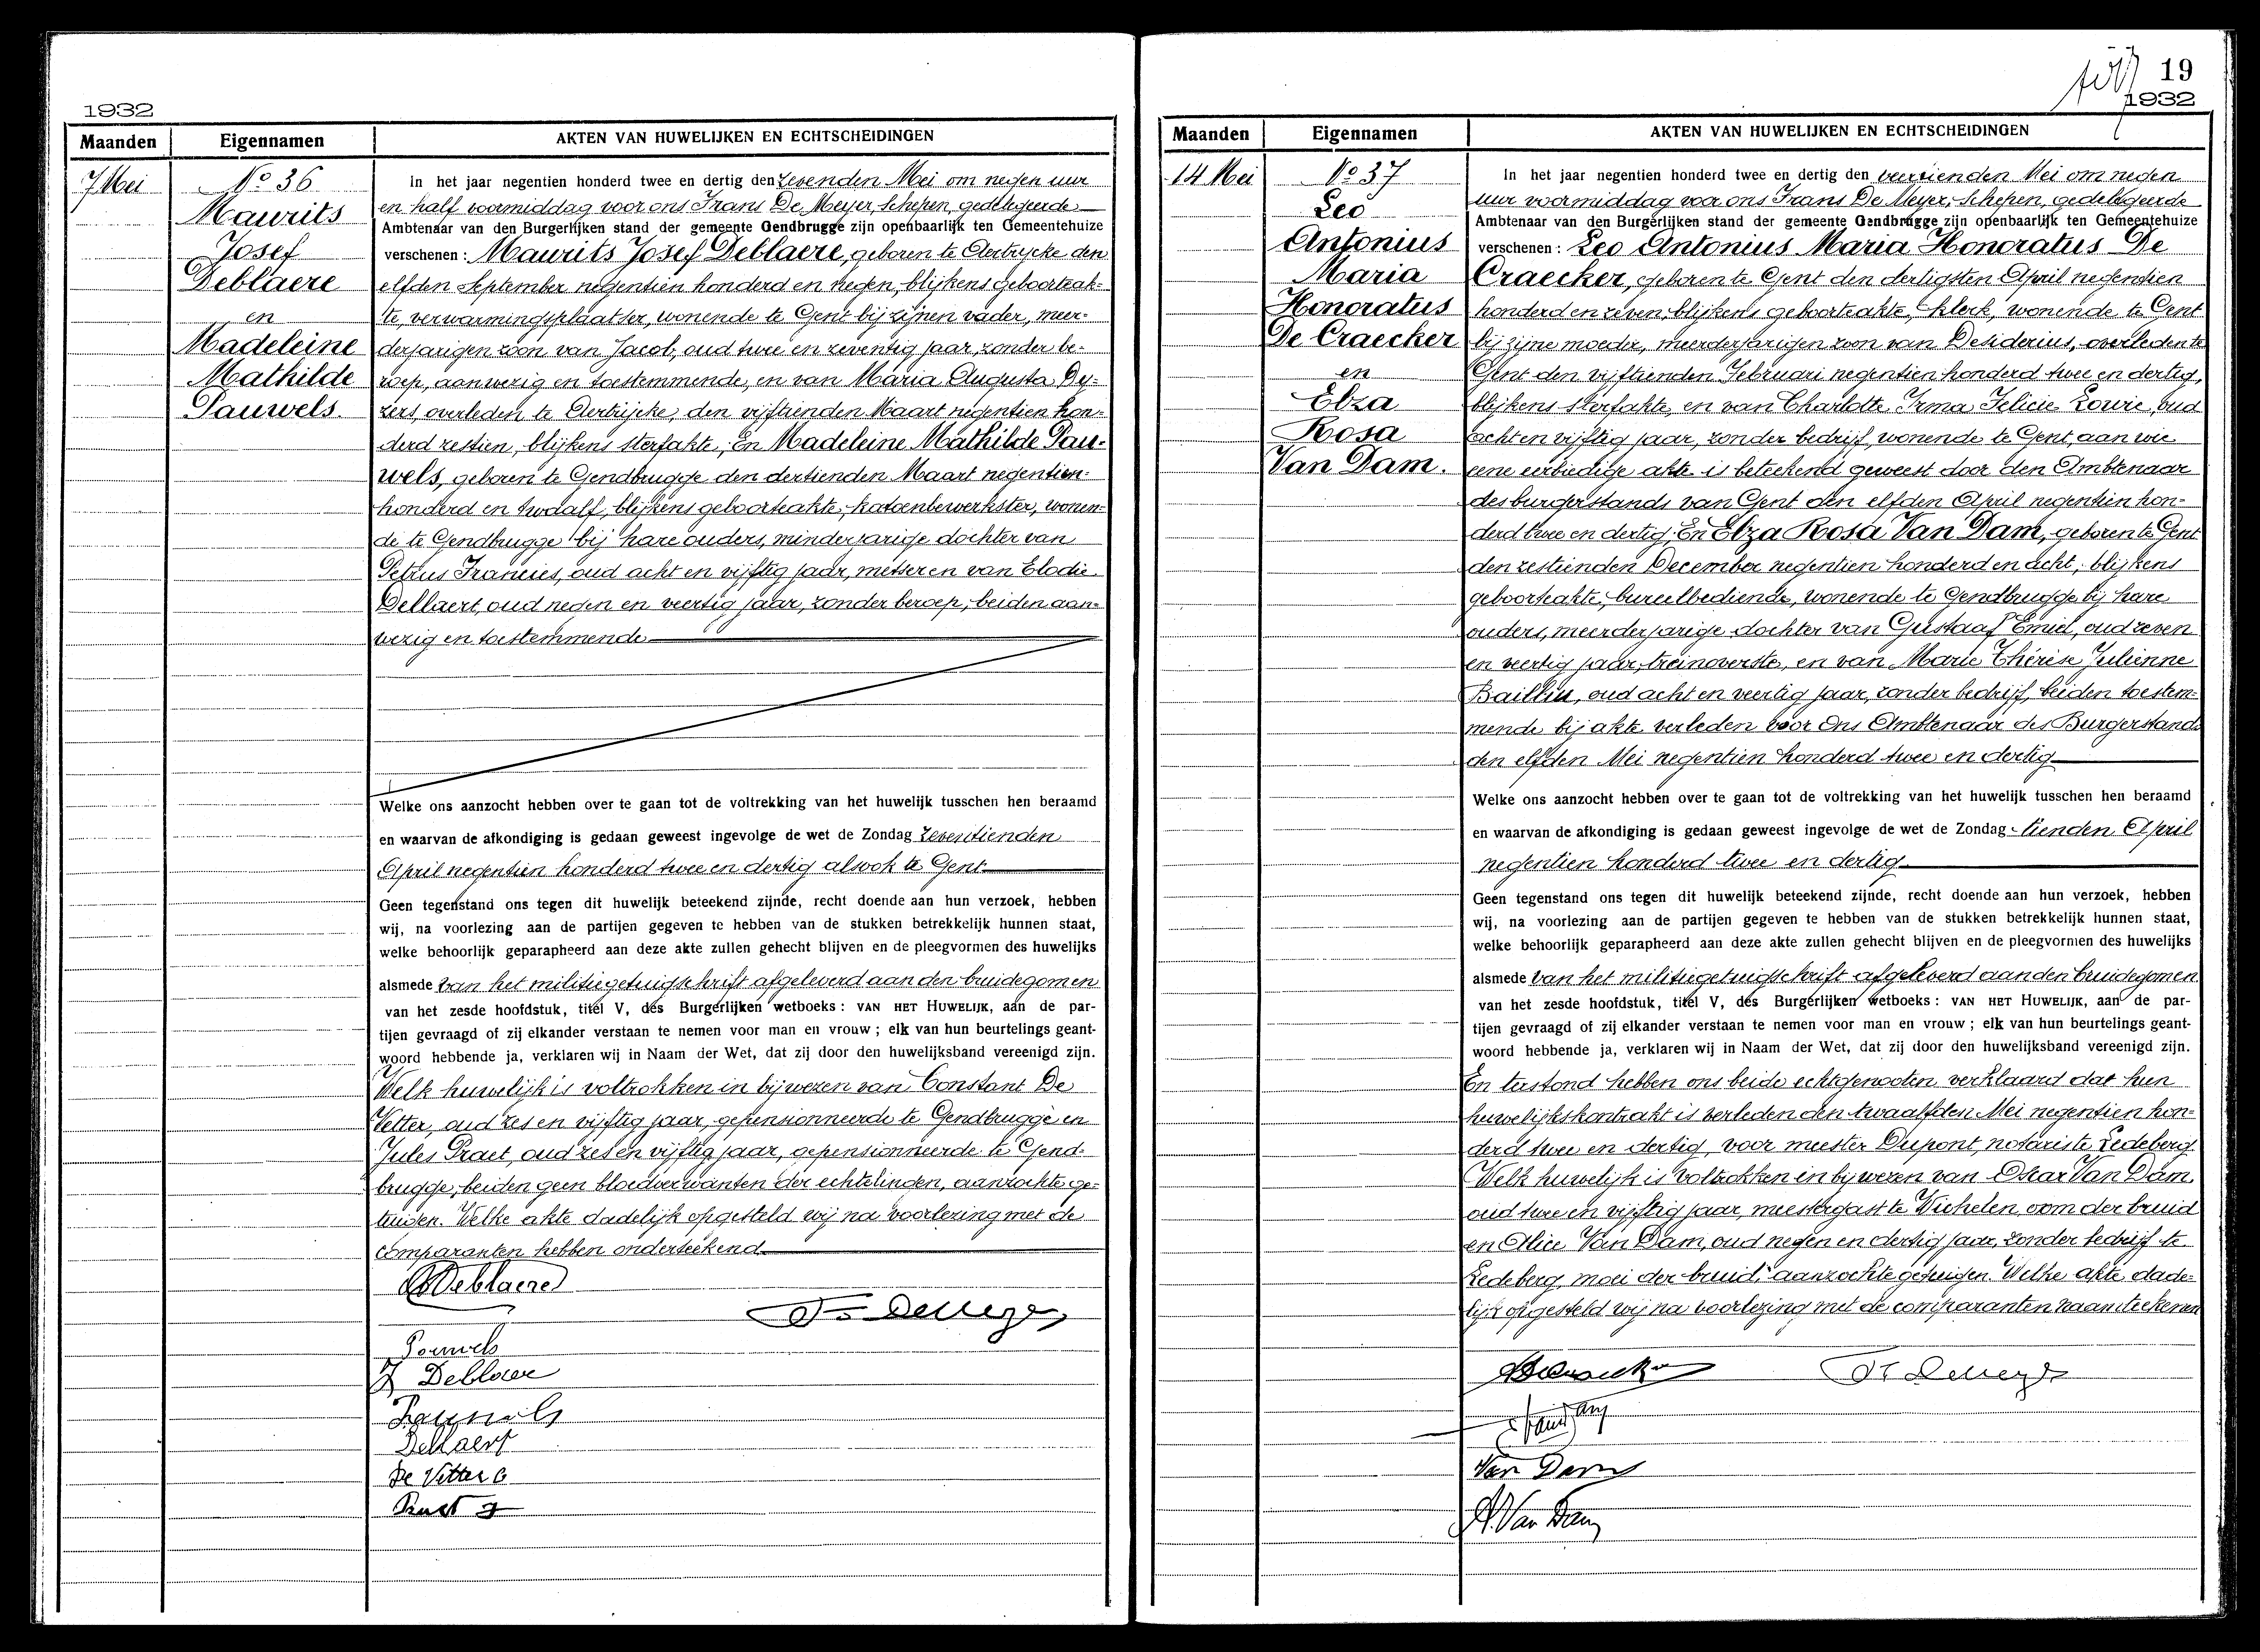 1932
Maanden Eigennamen AKTEN VAN HUWELIJKEN EN ECHTSCHEIDINGEN
7 Mei
No 36
Maurits
Josef
Deblaere
en
Madeleine
Mathilde
Pauwels.
In het jaar negentien honderd twee en dertig den zevenden Mei om negen uur
en half voormiddag voor ons Frans De Meyer, Schepen, gedelegeerde
Ambtenaar van den Burgerlijken stand der gemeente Gendbrugge zijn openbaarlijk ten Gemeentehuize
verschenen : Maurits Josef Deblaere, geboren te Aertrycke den
elfden September negentien honderd en negen, blijkens geboorteak-
te, verwarmingsplaatser, wonende te Gent bij zijnen vader, meer-
derjarigen zoon van Jacob, oud twee en zeventig jaar, zonder be-
roep, aanwezig en toestemmende, en van Maria Augusta Dy-
zers, overleden te Aertrijcke, den vijftienden Maart negentien hon-
derd zestien, blijkens sterfakte; En Madeleine Mathilde Pau-
wels, geboren te Gendbrugge den dertienden Maart negentien-
honderd en twaalf, blijkens geboorteakte, katoenbewerkster, wonen-
de te Gendbrugge bij hare ouders, minderjarige dochter van
Petrus Francies, oud acht en vijftig jaar, metser en van Elodie
Dellaert, oud negen en veertig jaar, zonder beroep, beiden aan-
wezig en toestemmende
Welke ons aanzocht hebben over te gaan tot de voltrekking van het huwelijk tusschen hen beraamd
en waarvan de afkondiging is gedaan geweest ingevolge de wet de Zondag zeventienden
April negentien honderd twee en dertig alsook te Gent
Geen tegenstand ons tegen dit huwelijk beteekend zijnde, recht doende aan hun verzoek, hebben
wij, na voorlezing aan de partijen gegeven te hebben van de stukken betrekkelijk hunnen staat,
welke behoorlijk geparapheerd aan deze akte zullen gehecht blijven en de pleegvormen des huwelijks
alsmede van het militiegetuigschrift afgeleverd aan den bruidegomen
van het zesde hoofdstuk, titel V, des Burgerlijken wetboeks : VAN HET HUWELIJK, aan de par-
tijen gevraagd of zij elkander verstaan te nemen voor man en vrouw ; elk van hun beurtelings geant-
woord hebbende ja, verklaren wij in Naam der Wet, dat zij door den huwelijksband vereenigd zijn.
Welk huwelijk is voltrokken in bijwezen van Constant De
Vetter, oud zes en vijftig jaar, gepensionneerde te Gendbrugge en
Jules Praet, oud zes en vijftig jaar, gepensionneerde te Gend-
brugge, beiden geen bloedverwanten der echtelingen, aanzochte ge-
tuigen. Welke akte dadelijk opgesteld wij na voorlezing met de
comparanten hebben onderteekend
Deblaere
Fr. De Meyer
Pauwels
J Deblaere
Pauwels
Dellaert
De Vetter C
Praet J
19
1932
Maanden Eigennamen AKTEN VAN HUWELIJKEN EN ECHTSCHEIDINGEN
14 Mei
No 37
Leo
Antonius
Maria
Honoratus
De Craecker
en
Elza
Rosa
Van Dam.
In het jaar negentien honderd twee en dertig den veertienden Mei om negen
uur voormiddag voor ons Frans De Meyer, Schepen, gedelegeerde
Ambtenaar van den Burgerlijken stand der gemeente Gendbrugge zijn openbaarlijk ten Gemeentehuize
verschenen : Leo Antonius Maria Honoratus De
Craecker, geboren te Gent den dertigsten April negentien
honderd en zeven, blijkens geboorteakte, klerk, wonende te Gent
bij zijne moeder, meerderjarigen zoon van Desiderius, overleden te
Gent den vijftienden Februari negentien honderd twee en dertig,
blijkens sterfakte, en van Charlotte Irma Felicie Lowie, oud
acht en vijftig jaar, zonder bedrijf, wonende te Gent, aan wie
eene eerbiedige akte is beteekend geweest door den Ambtenaar
des burgerstands van Gent den elfden April negentien hon-
derd twee en dertig; En Elza Rosa Van Dam, geboren te Gent
den zestienden December negentien honderd en acht, blijkens
geboorteakte, bureelbediende, wonende te Gendbrugge bij hare
ouders, meerderjarige dochter van Gustaaf Emiel, oud zeven
en veertig jaar, treinoverste, en van Marie Thérèse Julienne
Bailliu, oud acht en veertig jaar, zonder bedrijf, beiden toestem-
mende bij akte verleden voor Ons Ambtenaar des Burgerstands
den elfden Mei negentien honderd twee en dertig
Welke ons aanzocht hebben over te gaan tot de voltrekking van het huwelijk tusschen hen beraamd
en waarvan de afkondiging is gedaan geweest ingevolge de wet de Zondag tienden April
negentien honderd twee en dertig
Geen tegenstand ons tegen dit huwelijk beteekend zijnde, recht doende aan hun verzoek, hebben
wij, na voorlezing aan de partijen gegeven te hebben van de stukken betrekkelijk hunnen staat,
welke behoorlijk geparapheerd aan deze akte zullen gehecht blijven en de pleegvormen des huwelijks
alsmede van het militiegetuigschrift afgeleverd aan den bruidegomen
van het zesde hoofdstuk, titel V, des Burgerlijken wetboeks : VAN HET HUWELIJK, aan de par-
tijen gevraagd of zij elkander verstaan te nemen voor man en vrouw ; elk van hun beurtelings geant-
woord hebbende ja, verklaren wij in Naam der Wet, dat zij door den huwelijksband vereenigd zijn.
En terstond hebben ons beide echtgenooten verklaard dat hun
huwelijkskontrakt is verleden den twaalfden Mei negentien hon-
derd twee en dertig, voor meester Dupont, notaris te Ledeberg.
Welk huwelijk is voltrokken in bijwezen van Oscar Van Dam,
oud twee en vijftig jaar, meestergast te Wichelen, oom der bruid
en Alice Van Dam, oud negen en dertig jaar, zonder bedrijf te
Ledeberg, moei der bruid; aanzochte getuigen. Welke akte dade-
lijk opgesteld wij na voorlezing met de comparanten naamteekenen
Fr. De Meyer
Van Dam
A. Van Dam